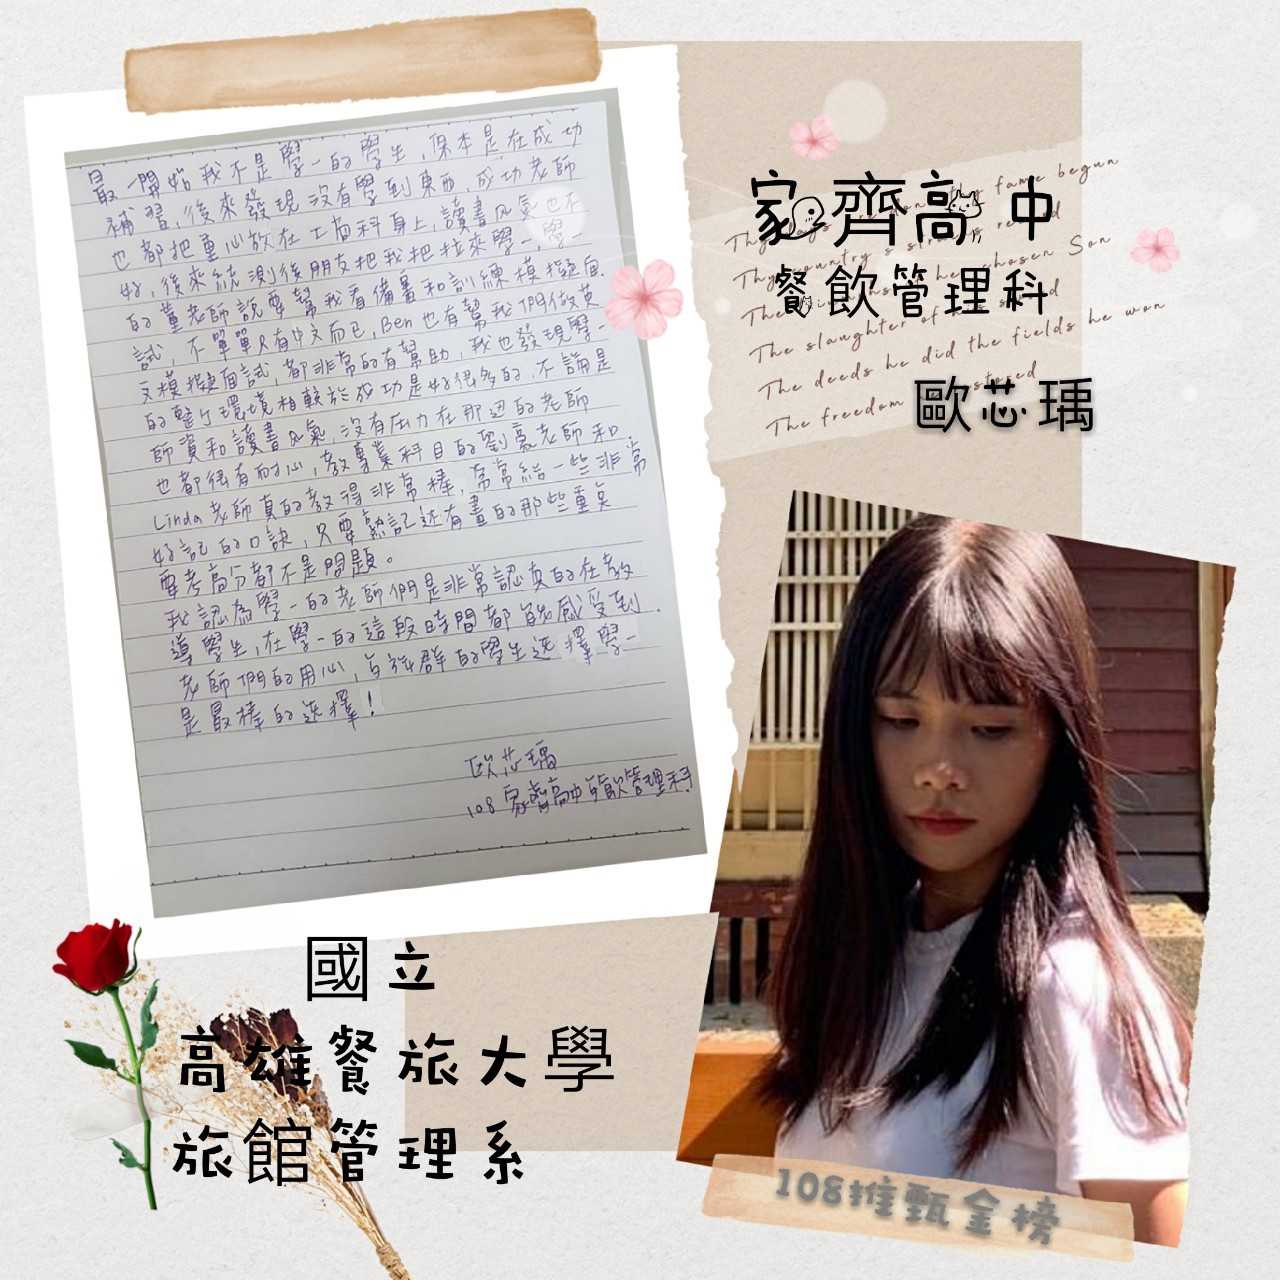 最一開始我不是學一的學生,原本是在成功
補習,後來發現沒有學到東西,成功老師
也都把重心放在士商科身上,讀書風氣也不
好,後來統測後朋友把我把拉來學一,學一
的董老師說要幫我看備審和訓練模擬面
試,不單單只有中文而已,Ben也有幫我們做英
文模擬面試,都非常的有幫助,我也發現學一
的整個環境相較於成功是好很多的,不論是
師資和讀書風氣,沒有压力在那边的老師
也都很有耐心,教專業科目的劉豪老師和
Linda老師真的教得非常棒,常常給一些非常
好記的口訣,只要熟記还有畫的那些重点
要考高分都不是問題。
我認為學一的老師們是非常認真的在教
導學生,在學一的這段時間都能感受到
老師們的用心,与the群的學生选擇學一
是最棒的选擇!
欧芯瑀
108家齊高中餐飲管理科
家齊高中
餐飲管理科
歐芯瑀
fame begun
Son
The slaughter of
The deeds he did the fields he won
The freedom
國立
高雄餐旅大學
旅館管理系
108推甄金榜